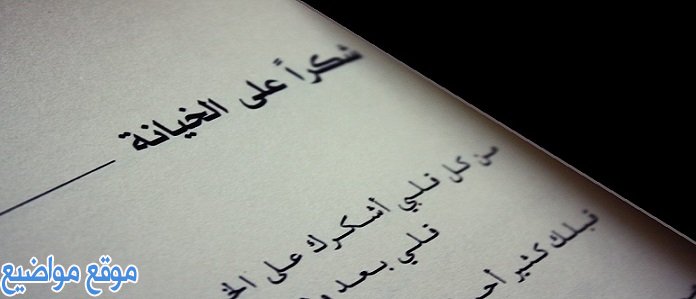 شكراً على الخيانة
من كل قلبي أشكرك على
قلبي بعد
قبلك كثير
موقع مواضيع